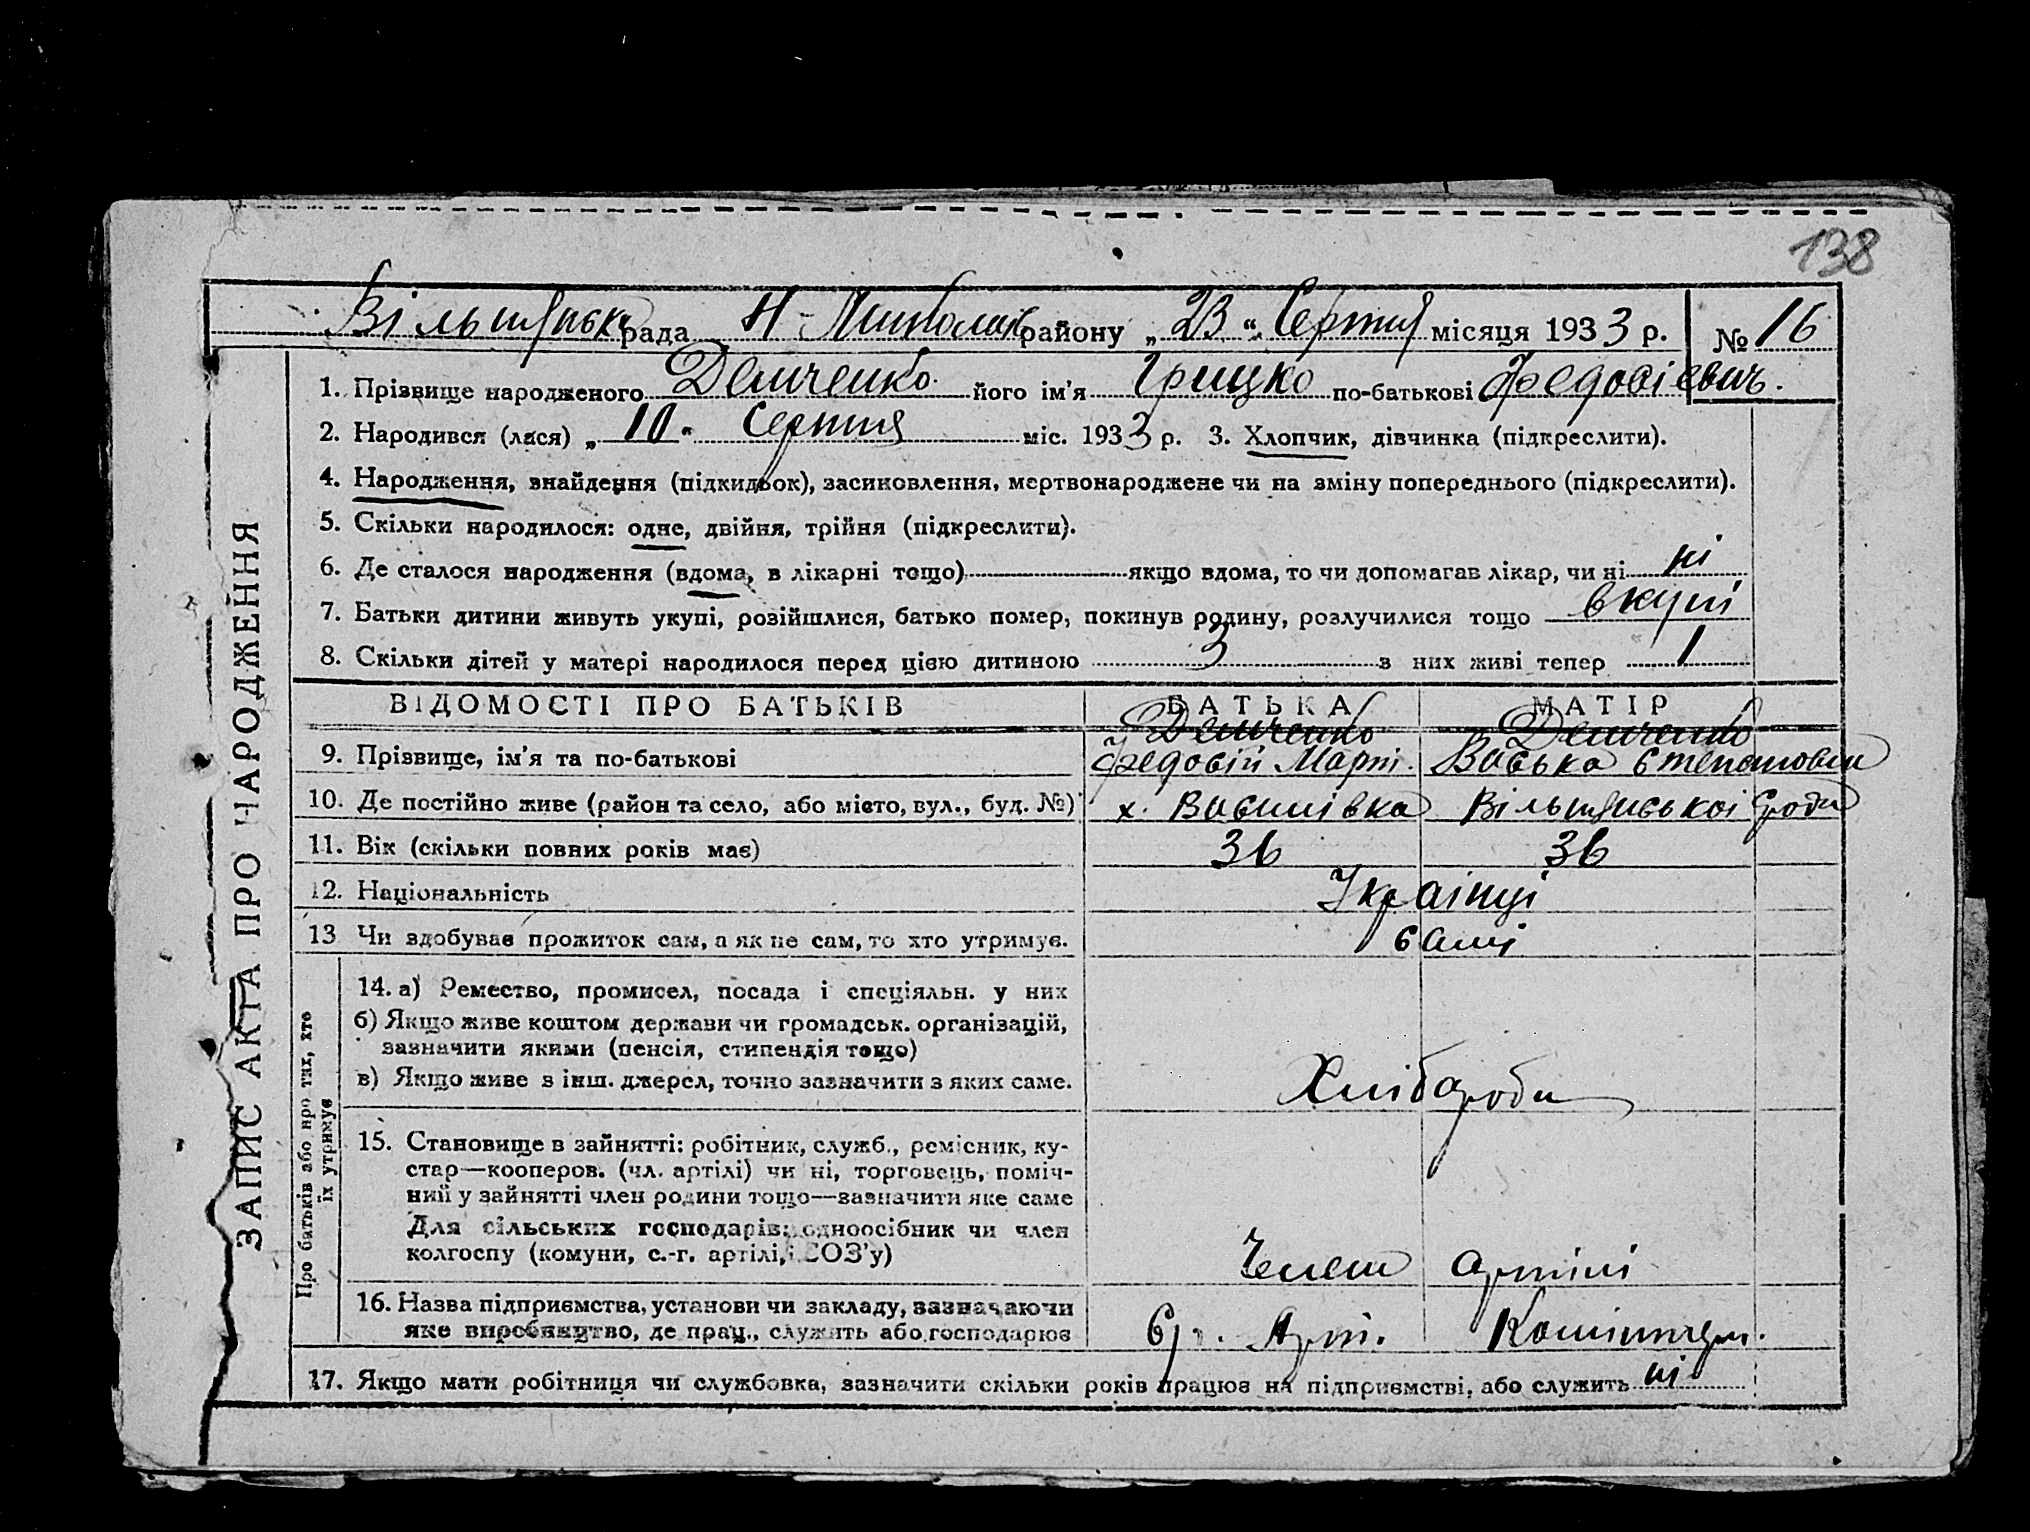 138
Вільшанська рада Н-Миколаїв району „23“ Серпня місяця 1933 р. № 16
1. Прізвище народженого Демченко його ім'я Грицко по-батькові Федосієвич.
2. Народився (лася) „10“ Серпня міс. 1933 р. 3. Хлопчик, дівчинка (підкреслити).
4. Народження, знайдення (підкидьок), засиновлення, мертвонароджене чи на зміну попереднього (підкреслити).
5. Скільки народилося: одне, двійня, трійня (підкреслити).
6. Де сталося народження (вдома, в лікарні тощо) якщо вдома, то чи допомагав лікар, чи ні ні
7. Батьки дитини живуть укупі, розійшлися, батько помер, покинув родину, розлучилися тощо вкупі
8. Скільки дітей у матері народилося перед цією дитиною 3 з них живі тепер 1
ЗАПИС АКТА ПРО НАРОДЖЕННЯ
ВІДОМОСТІ ПРО БАТЬКІВ БАТЬКА МАТІР
Демченко Демченко
9. Прізвище, ім'я та по-батькові Федосій Март. Васька Степановна
10. Де постійно живе (район та село, або місто, вул., буд. №) х. Василівка Вільшанської Сради
11. Вік (скільки повних років має) 36 36
12. Національність Українці
13 Чи здобуває прожиток сам, а як не сам, то хто утримує. самі
Про батьків або про тих, хто їх утримує
14. а) Ремество, промисел, посада і спеціяльн. у них
б) Якщо живе коштом держави чи громадськ. організацій,
зазначити якими (пенсія, стипендія тощо)
в) Якщо живе з інш. джерел, точно зазначити з яких саме.
Хлібороби
15. Становище в зайнятті: робітник, служб., ремісник, ку-
стар—кооперов. (чл. артілі) чи ні, торговець, поміч-
ний у зайнятті член родини тощо—зазначити яке саме
Для сільських господарів: одноосібник чи член
колгоспу (комуни, с.-г. артілі, СОЗ'у)
Члени артілі
16. Назва підприємства, установи чи закладу, зазначаючи
яке виробництво, де прац., служить або господарює Арт. Комінтерн.
17. Якщо мати робітниця чи службовка, зазначити скільки років працює на підприємстві, або служить ні